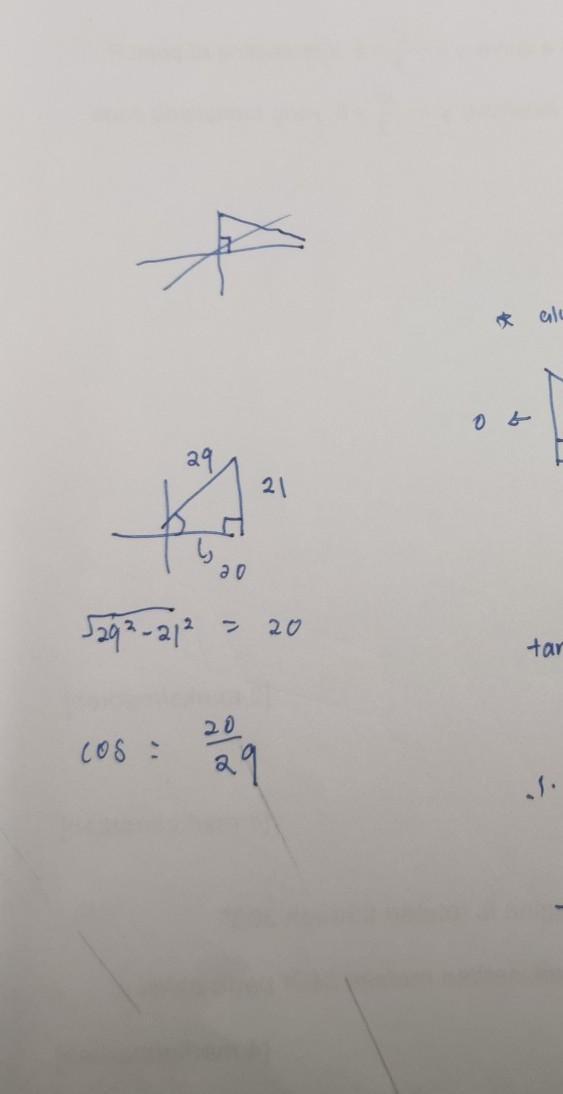 29
21
20
√29²-21² = 20
cos = 20/29
* alu
0 ←
tan